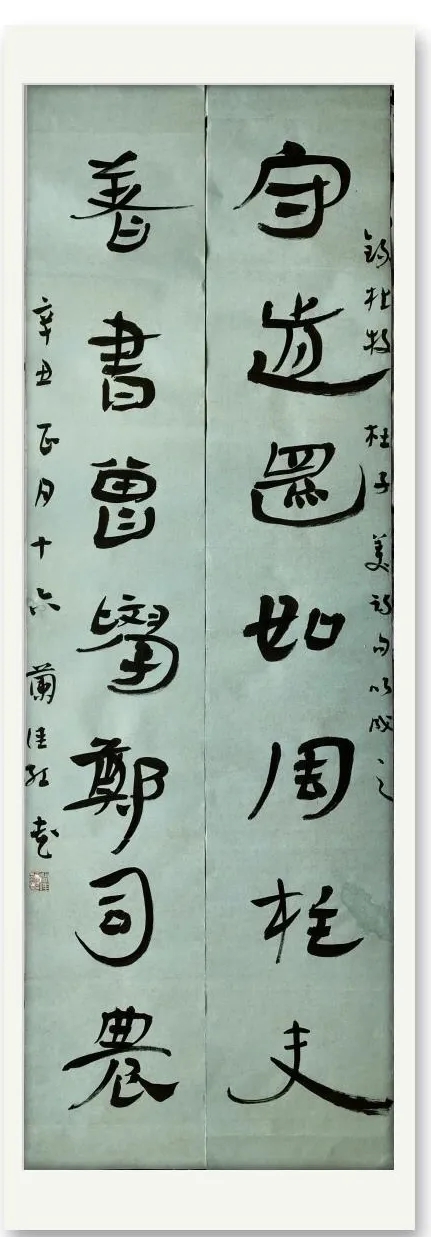 杜牧 杜子美詩句以成之
守道還如周柱史
善書曾學鄭司農
辛丑正月十六 蘭佳